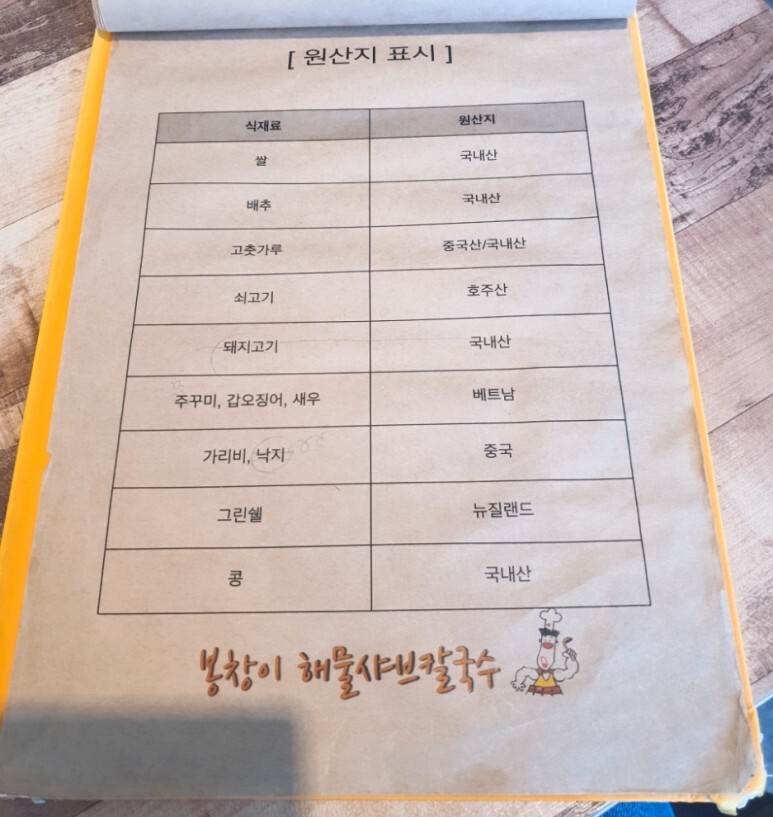 [ 원산지 표시 ]
식재료 원산지
쌀 국내산
배추 국내산
고춧가루 중국산/국내산
쇠고기 호주산
돼지고기 국내산
주꾸미, 갑오징어, 새우 베트남
가리비, 낙지 중국
그린쉘 뉴질랜드
콩 국내산
봉창이 해물샤브칼국수